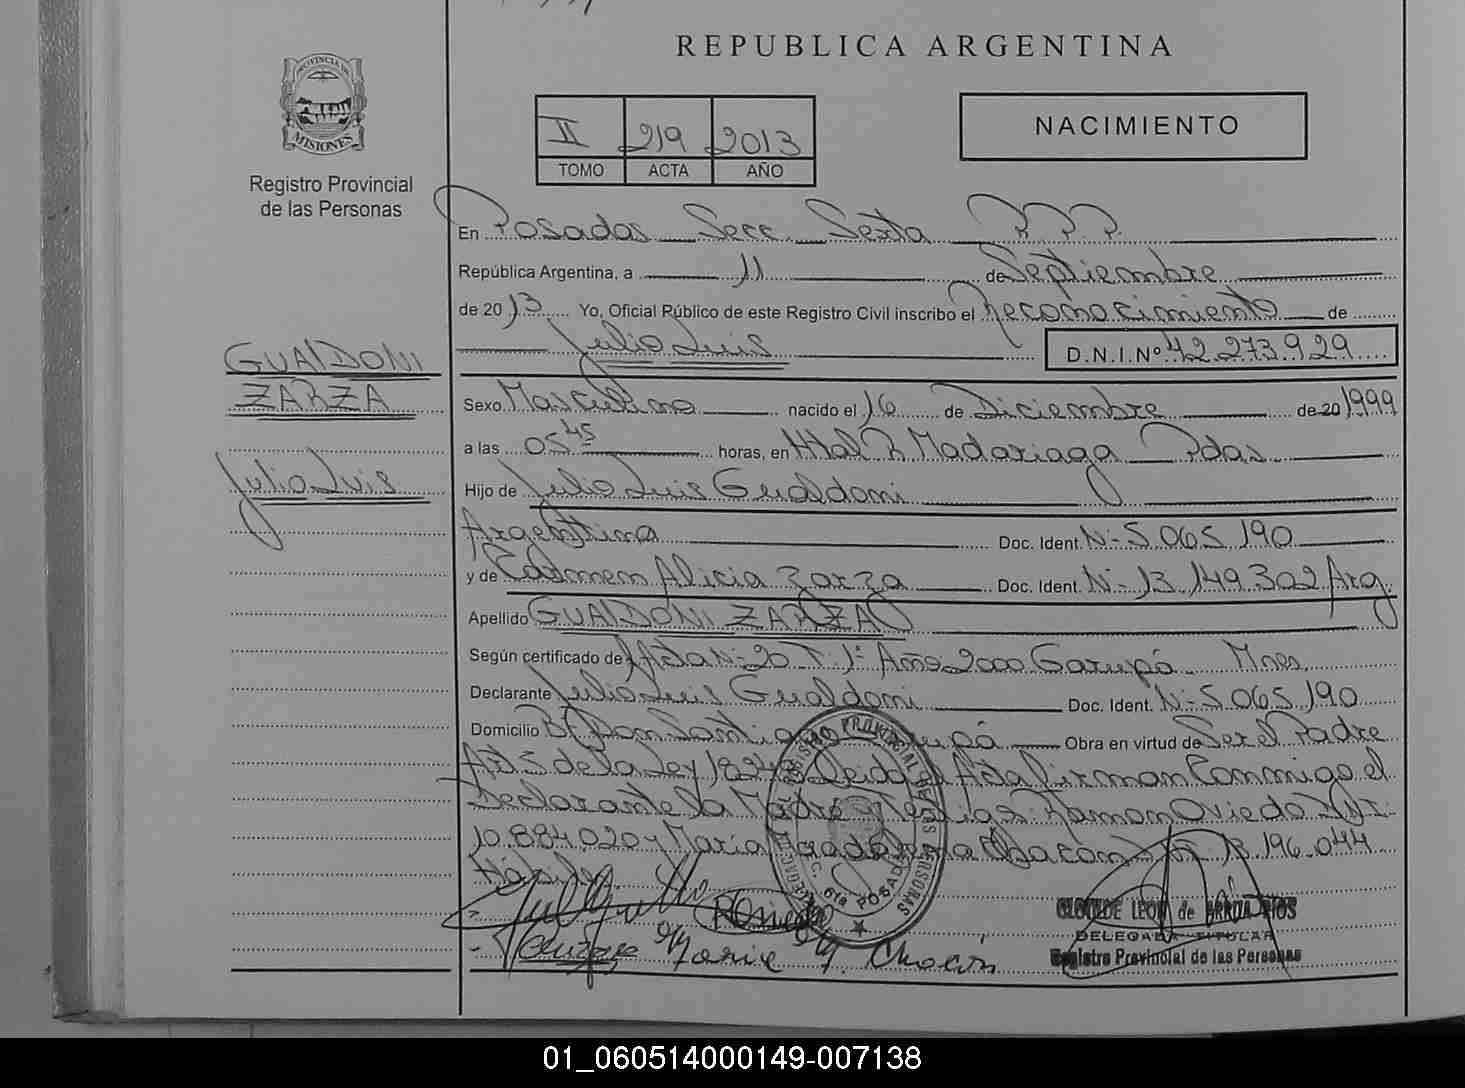 REPUBLICA ARGENTINA
PROVINCIA DE
MISIONES
Registro Provincial
de las Personas
II 219 2013
TOMO ACTA AÑO
NACIMIENTO
En Posadas Secc. Sexta R.P.P.
República Argentina, a 11 de Septiembre
de 2013 Yo, Oficial Público de este Registro Civil inscribo el Reconocimiento de
Julio Luis D.N.I.Nº 42.273.929
GUALDONI
ZARZA
Julio Luis
Sexo Masculino nacido el 16 de Diciembre de 20 1999
a las 05 45 horas, en Htal R Madariaga Pdas
Hijo de Julio Luis Gualdoni
Argentina Doc. Ident. Nº 5.065.190
y de Carmen Alicia Zarza Doc. Ident. Nº 13.149.302 Arg.
Apellido GUALDONI ZARZA
Según certificado de Acta Nº 20 T. 1º Año 2000 Garupá Mnes.
Declarante Julio Luis Gualdoni Doc. Ident. Nº 5.065.190
Domicilio Bº Don Santiago Garupá Obra en virtud de Ser el Padre
Art 5 de la Ley 18248 Leida el Acta firman Conmigo el
Declarante la Madre y Testigos: Ramon Oviedo
10.884.020 y Maria Chacon 13.196.044
Hábiles.
Maria M. Chacón
REGISTRO PROVINCIAL DE LAS PERSONAS
6ta POSADAS
CLOTILDE LEON de ARRUA RIOS
DELEGADA TITULAR
Registro Provincial de las Personas
01_060514000149-007138